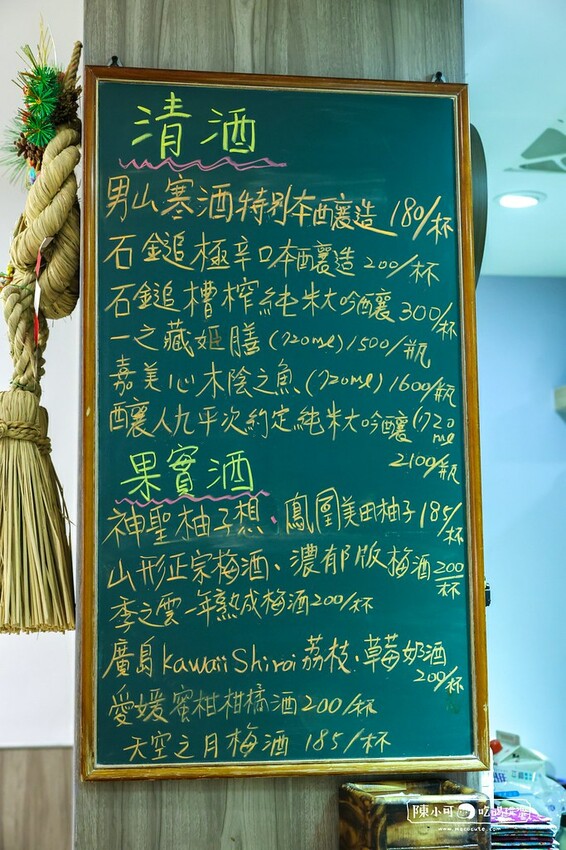 清酒
男山寒酒特別本釀造 180/杯
石鎚極辛口本釀造 200/杯
石鎚槽榨純米大吟釀 300/杯
一之藏姬膳(720ml)1500/瓶
嘉美心木陰之魚(720ml)1600/瓶
釀人九平次約定純米大吟釀(720ml
2100/瓶
果實酒
神聖柚子想、鳳凰美田柚子185/杯
山形正宗梅酒、濃郁版梅酒200/杯
季之雲一年熟成梅酒200/杯
廣島kawaii Shiroi荔枝、草莓奶酒
200/杯
愛媛蜜柑柑橘酒200/杯
天空之月梅酒 185/杯
陳小可 吃喝玩樂